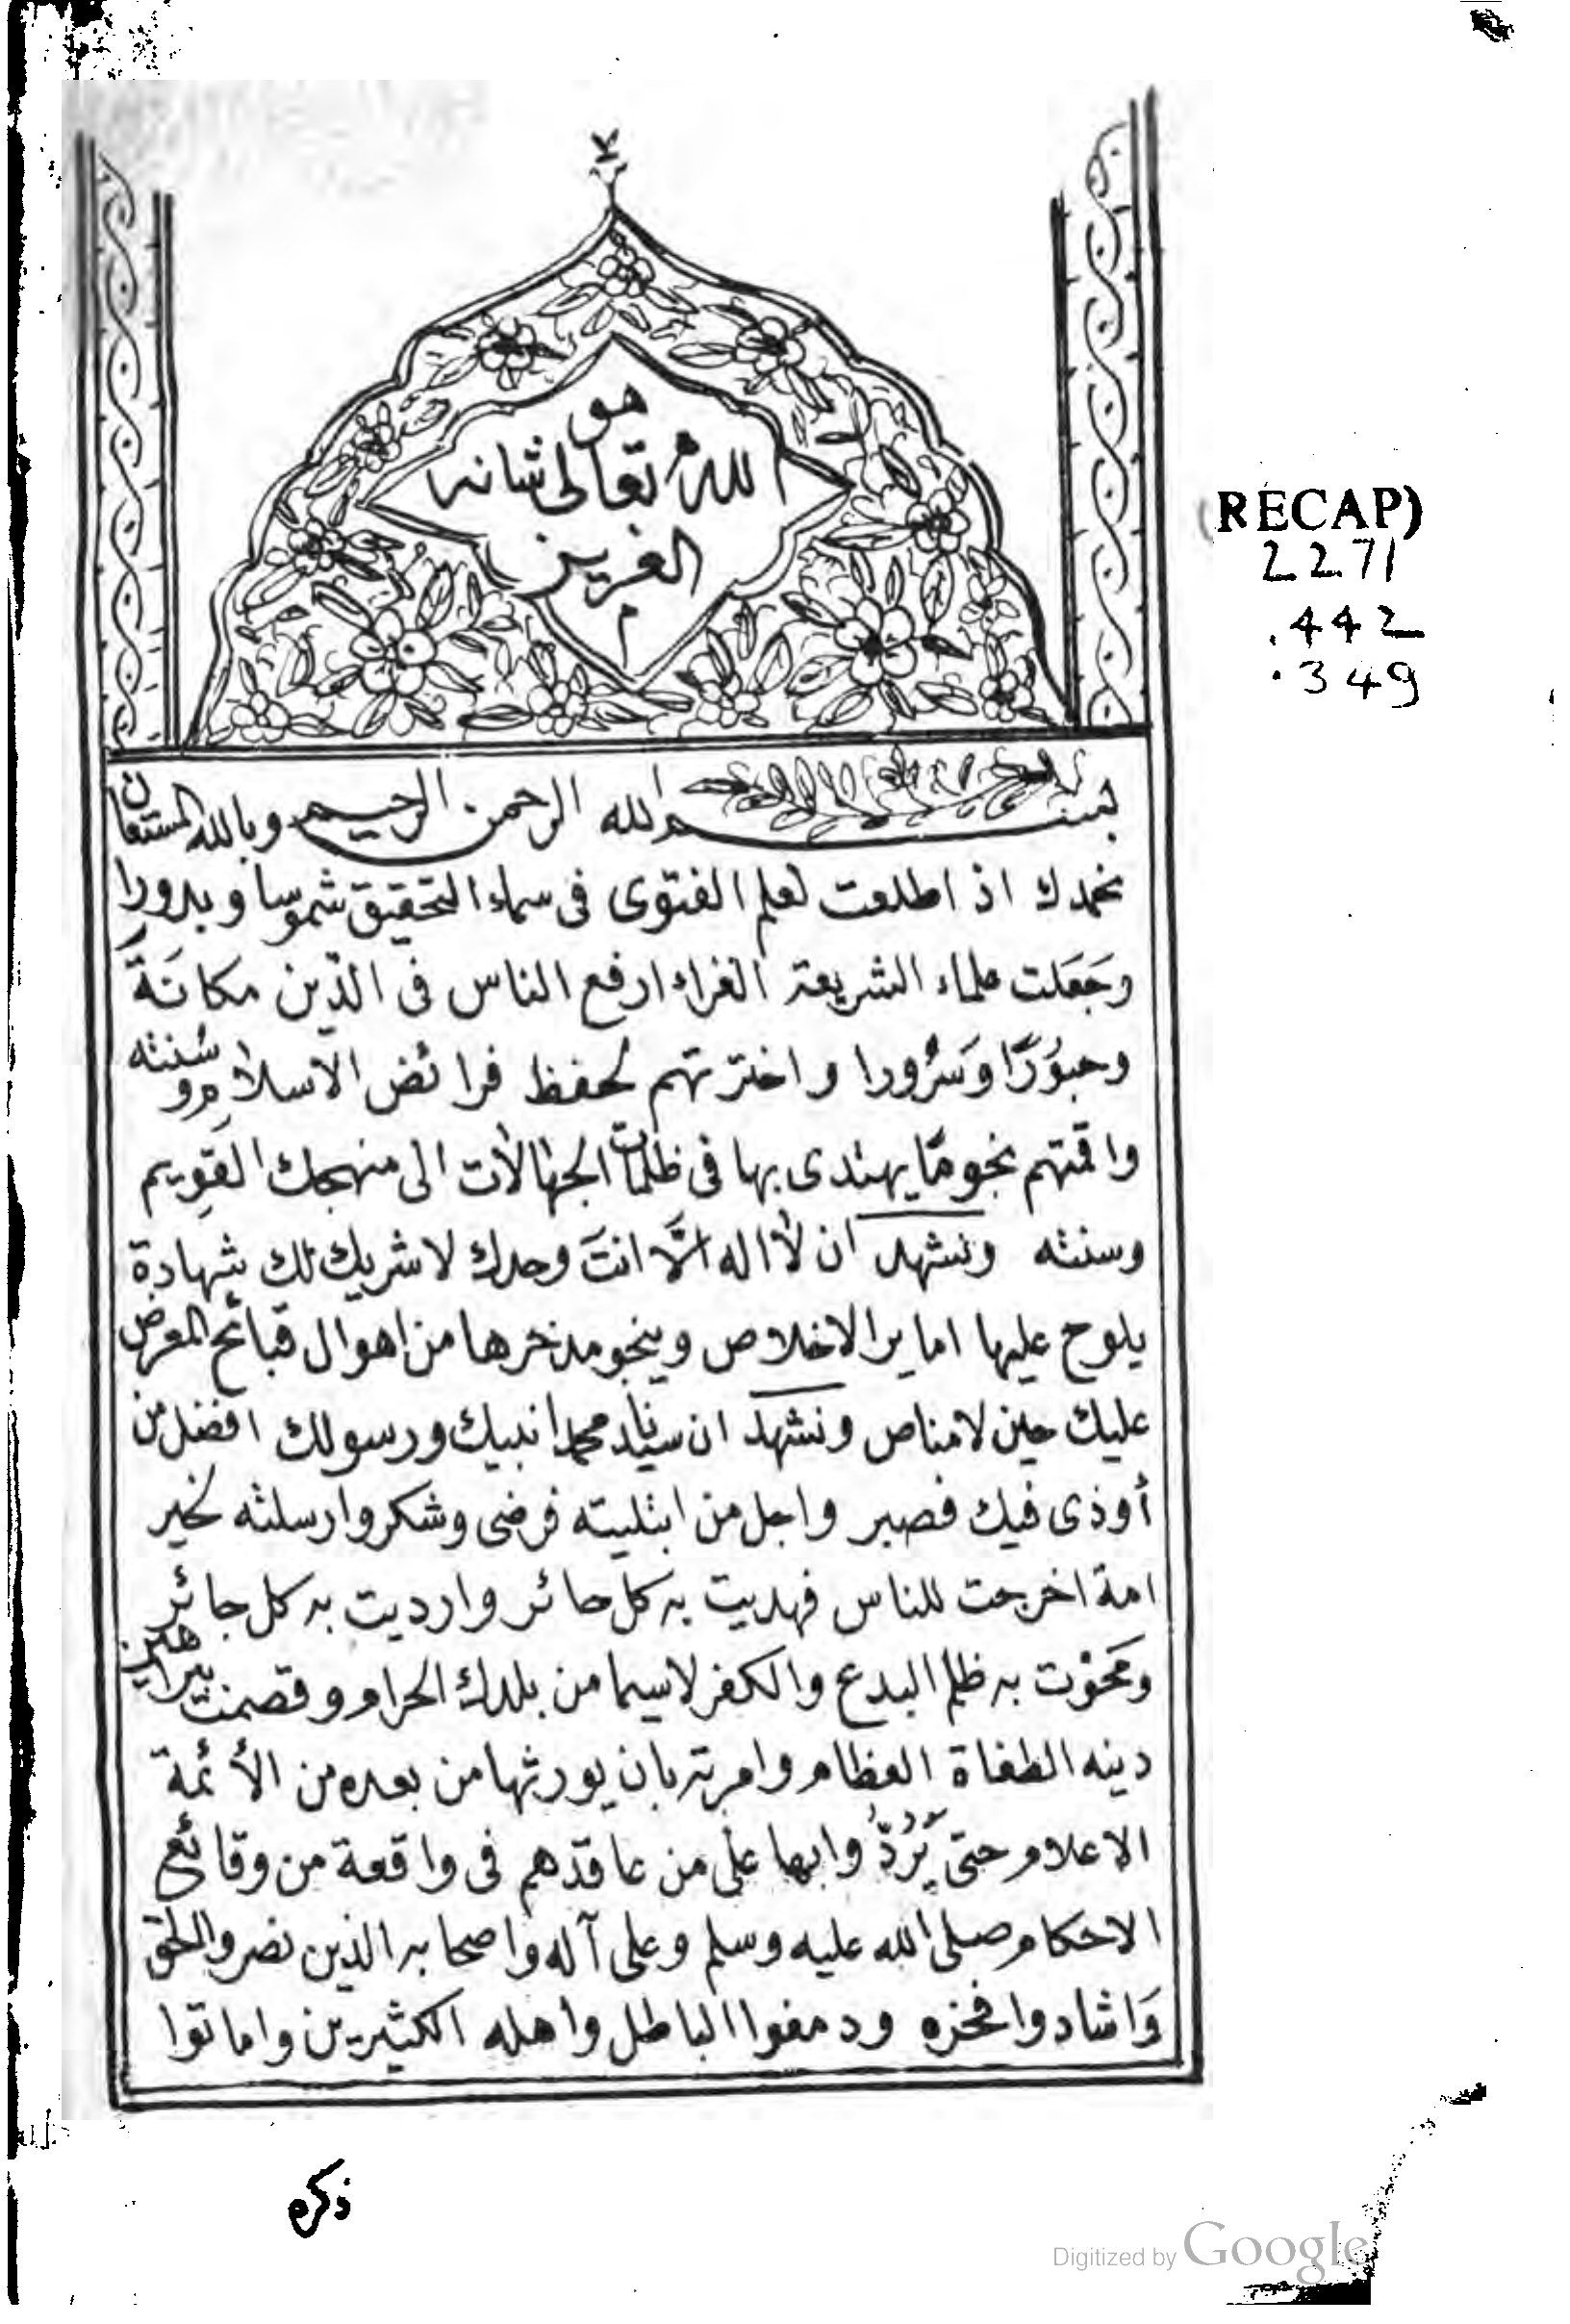 هو
الله تعالى شانه
العزيز
م
بسم الله الرحمن الرحيم وبالله المستعان
نحمدك اذ اطلعت لعلم الفتوى فى سماء التحقيق شموسا وبدورا
وجَعَلت علماء الشريعة الغراء ارفع الناس فى الدّين مكانَةً
وحبوُرًا وَسرُورا واخترتهم لحفظ فرائض الاسلام وسُنته
واقمتهم نجومًا يهتدى بها فى ظلمات الجهالات الى منهجك القويم
وسنته ونشهد ان لا اله الَّا انتَ وحدك لا شريك لك شهادة
يلوح عليها اماير الاخلاص وينجو مدخرها من اهوال قبائح المعرض
عليك حين لا مناص ونشهد ان سيدنا محمدا نبيك ورسولك افضل من
أوذى فيك فصبر واجل من ابتليته فرضى وشكر وارسلته لخير
امة اخرجت للناس فهديت به كل حائر وارديت به كل جائر
ومَحَوْت به ظلم البدع والكفر لاسيما من بلدك الحرام وقصمت ببراهين
دينه الطغاة العظام وامرته بان يورثها من بعده من الأئمة
الاعلام حتى يَرُدّوا بها على من عاقدهم فى واقعة من وقائع
الاحكام صلى الله عليه وسلم وعلى آله واصحابه الذين نصروا الحق
وَاشادوا فخره ودمغوا الباطل واهله الكثيرين واماتوا
ذكره
RECAP)
2271
.442
.349
Digitized by Google